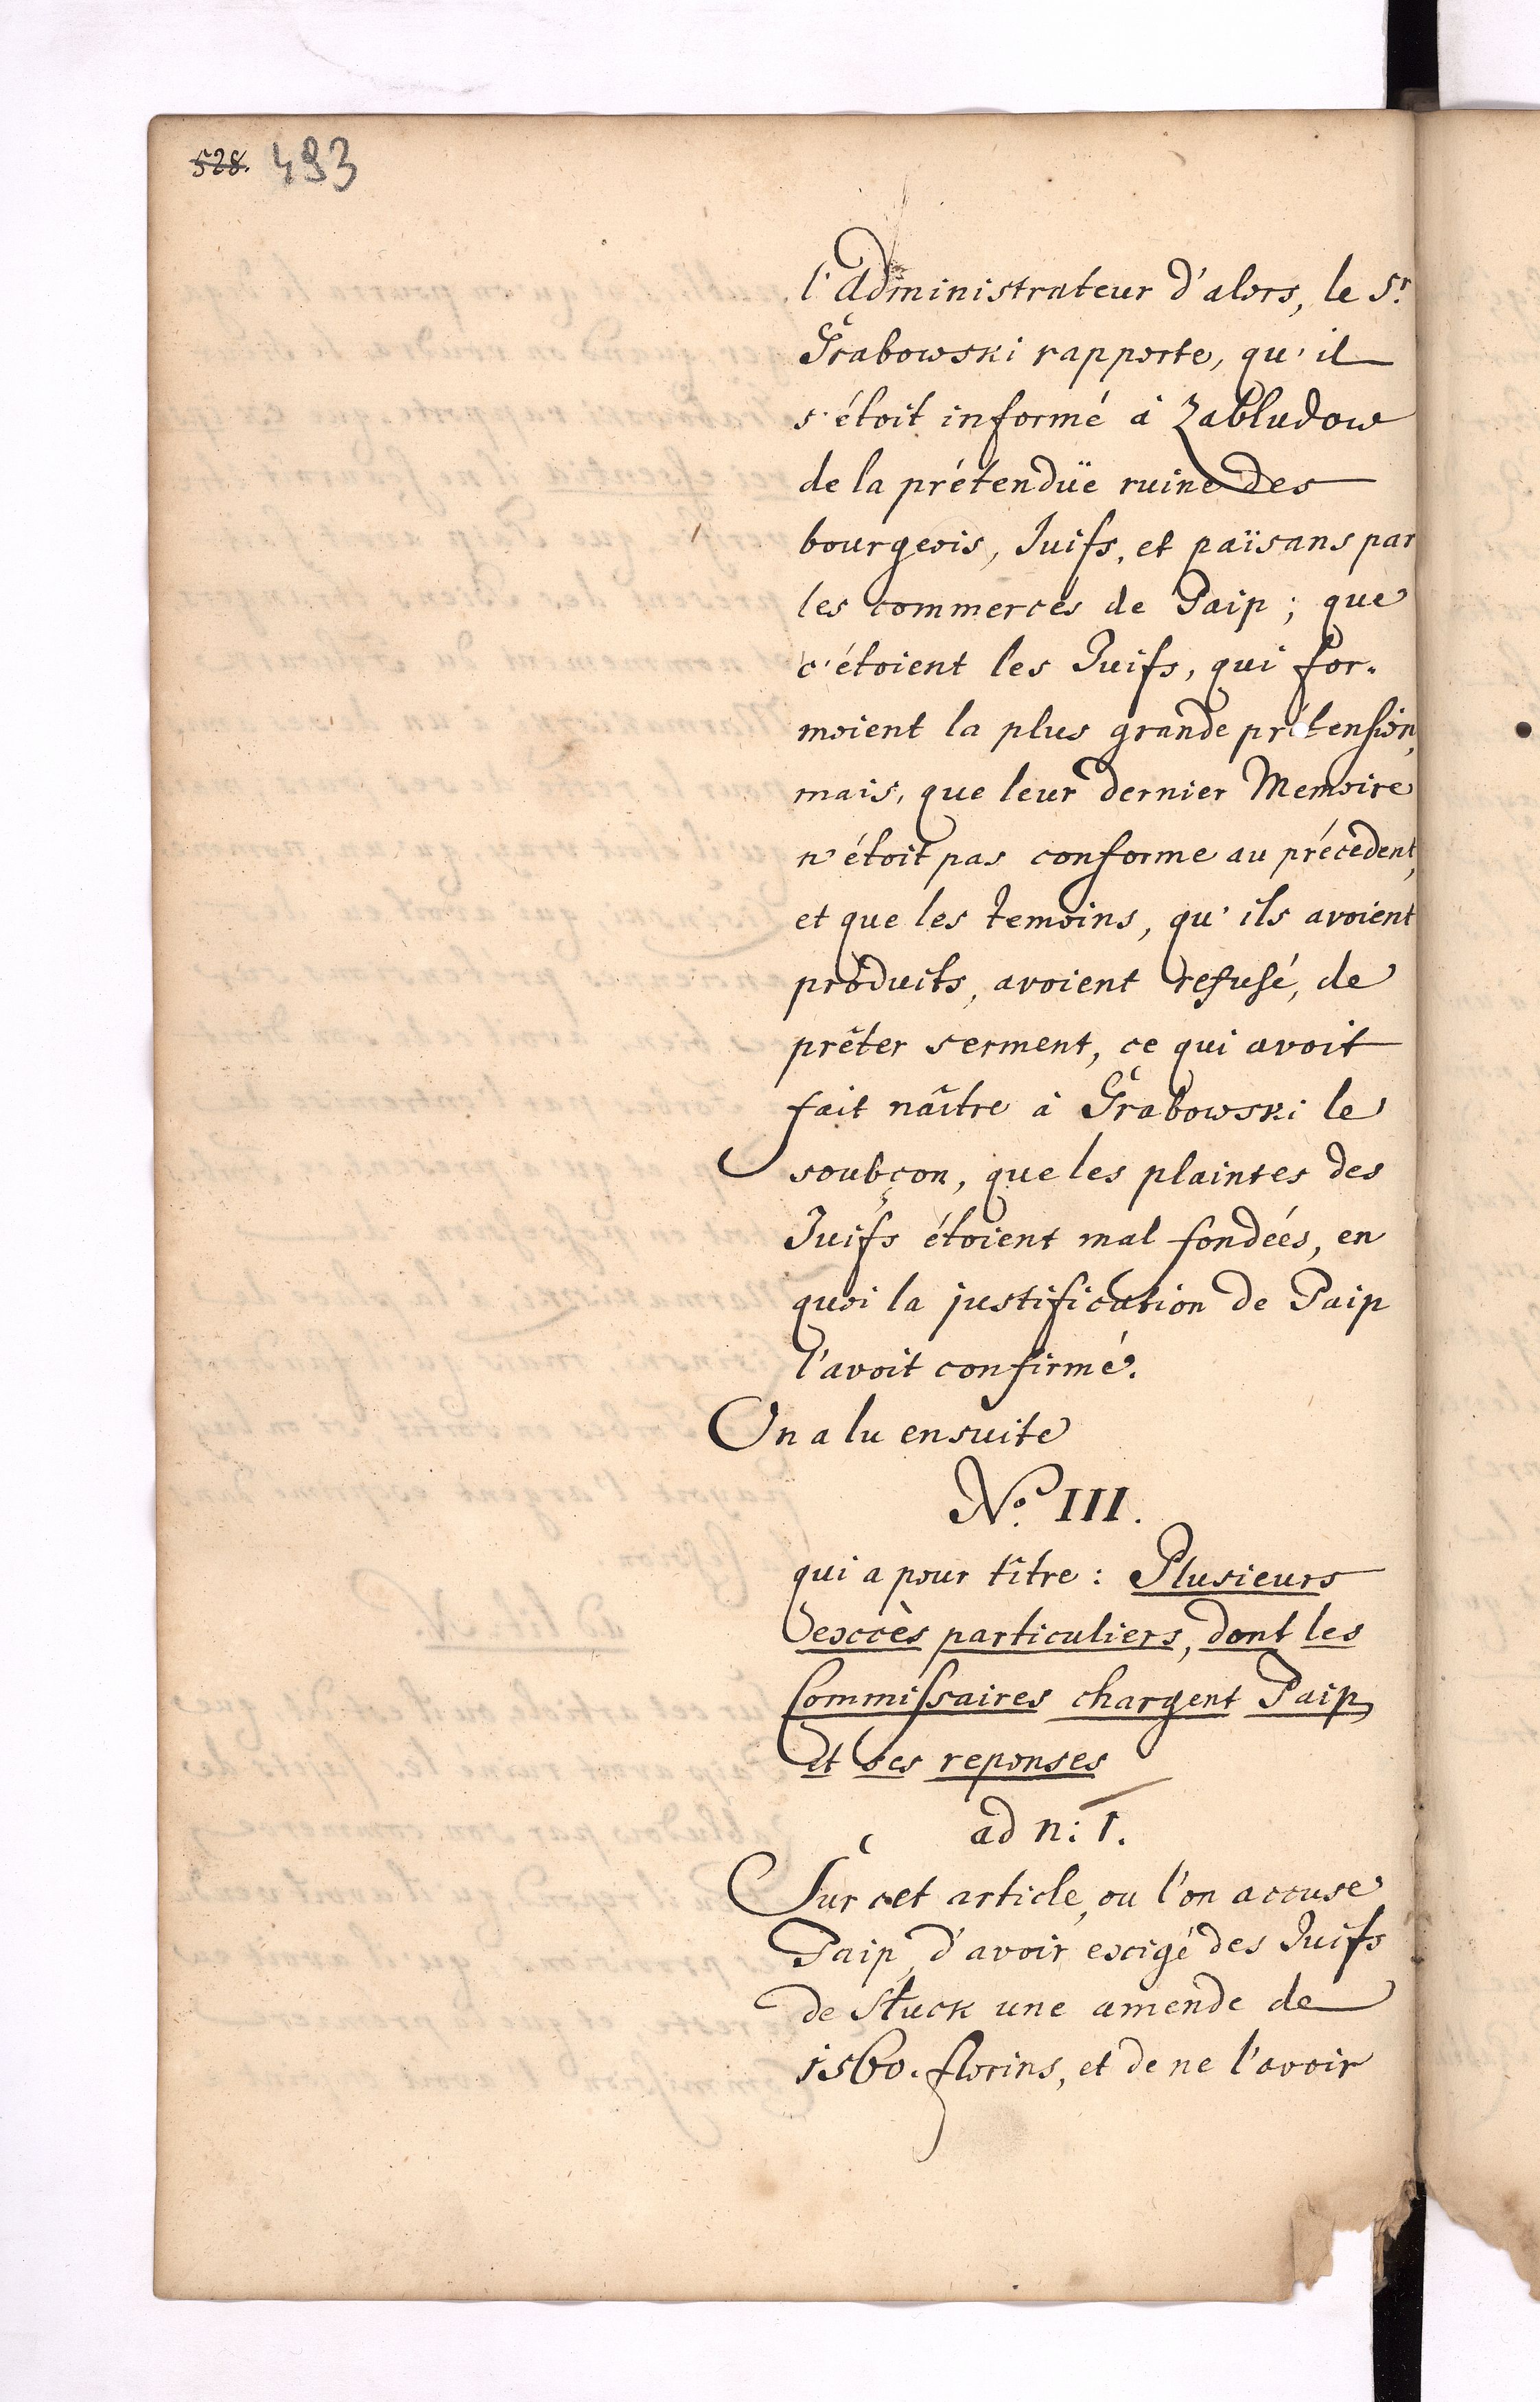 528. 493
l'Administrateur d'alors, le Sr.
Grabowski rapporte, qu'il
s'étoit informé à Zabludow
de la prétendüe ruine des
bourgeois, Juifs, et païsans par
les commerces de Paip; que
c'étoient les Juifs, qui for-
moient la plus grande prétension,
mais, que leur dernier Memoire
n'étoit pas conforme au précedent,
et que les temoins, qu'ils avoient
produits, avoient refusé, de
prêter serment, ce qui avoit
fait naître à Grabowski le
soubçon, que les plaintes des
Juifs étoient mal fondées, en
quoi la justification de Paip
l'avoit confirmé.
On a lu ensuite
No. III.
qui a pour tître: Plusieurs
excès particuliers, dont les
Commissaires chargent Paip,
et ses reponses
ad n: 1.
Sur cet article, ou l'on accuse
Paip, d'avoir exigé des Juifs
de Słuck une amende de
1560. florins, et de ne l'avoir